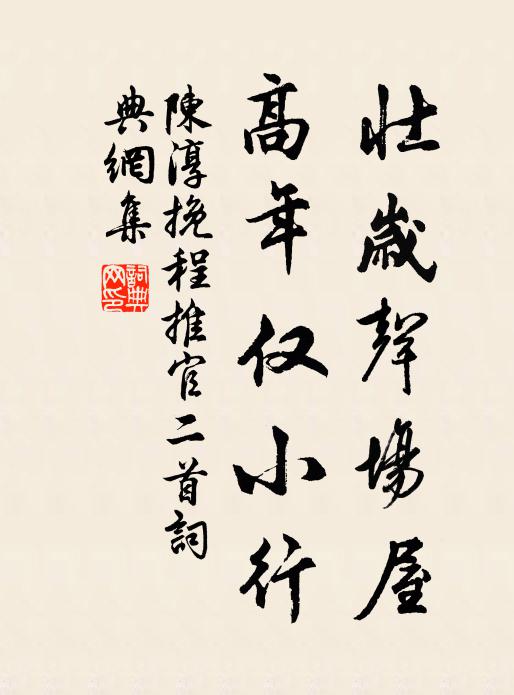 壯歲聲場屋
高年仅小行
陳淳挽程推官二首詞
典網集
詞典網印